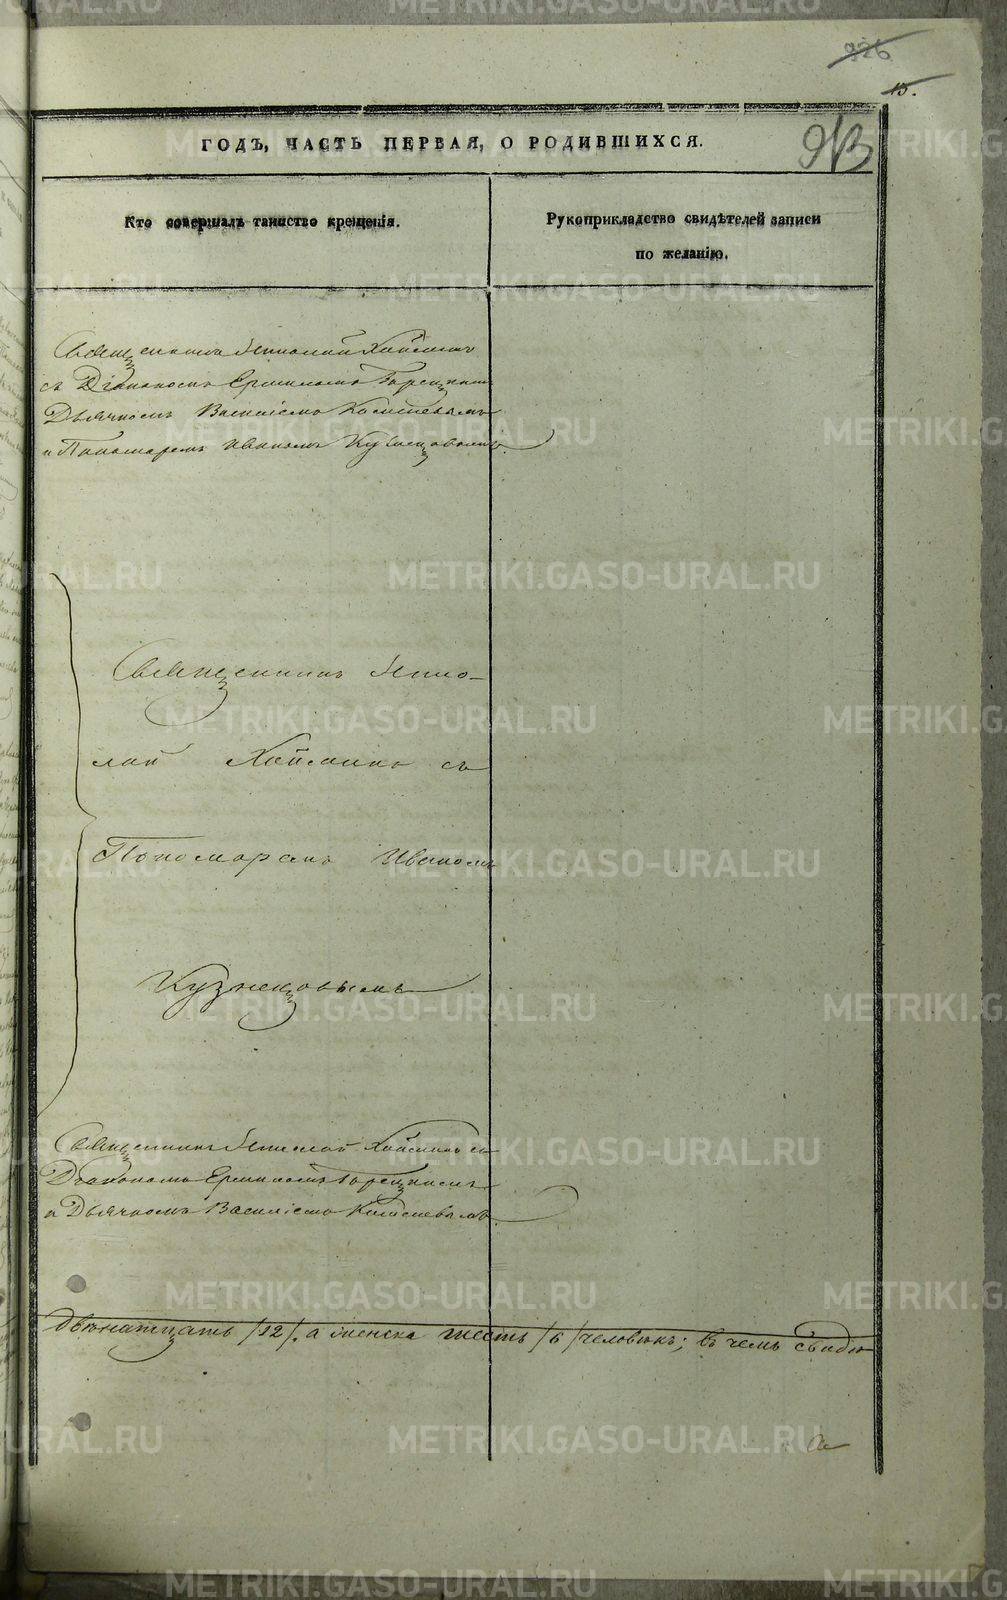 926
15.
913
ГОДЪ, ЧАСТЬ ПЕРВАЯ, О РОДИВШИХСЯ.
Кто совершалъ таинство крещенія.
Рукоприкладство свидѣтелей записи
по желанію.
Священникъ Николай Хайминъ
съ Діакономъ Ермиломъ
Дьячкомъ Василіемъ
и Пономаремъ Иваномъ Кузнецовымъ.
Священникъ Нико-
лай Хайминъ съ
Пономаремъ Иваномъ
Кузнецовымъ
Священникъ Николай Хайминъ съ
Діакономъ Ермиломъ
и Дьячкомъ Василіемъ
Двѣнатцать /12/. а женска шесть /6/ человѣкъ; въ чемъ свидѣ
METRIKI.GASO-URAL.RU